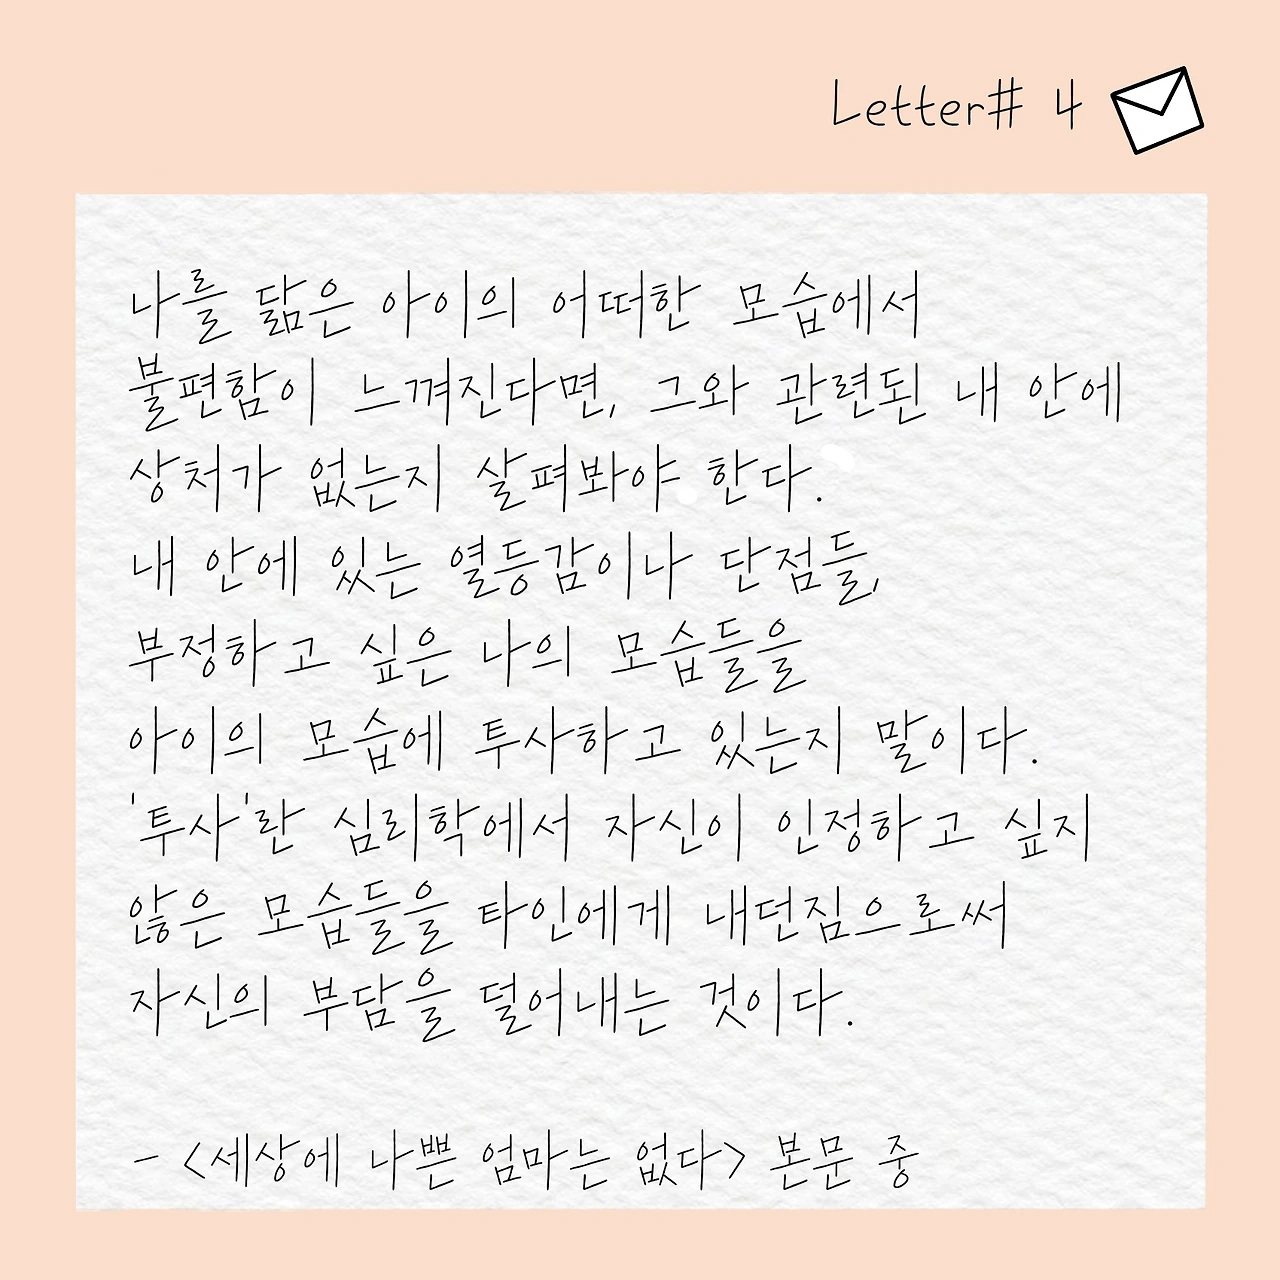 Letter# 4
나를 닮은 아이의 어떠한 모습에서
불편함이 느껴진다면, 그와 관련된 내 안에
상처가 없는지 살펴봐야 한다.
내 안에 있는 열등감이나 단점들,
부정하고 싶은 나의 모습들을
아이의 모습에 투사하고 있는지 말이다.
'투사'란 심리학에서 자신이 인정하고 싶지
않은 모습들을 타인에게 내던짐으로써
자신의 부담을 덜어내는 것이다.
- <세상에 나쁜 엄마는 없다> 본문 중